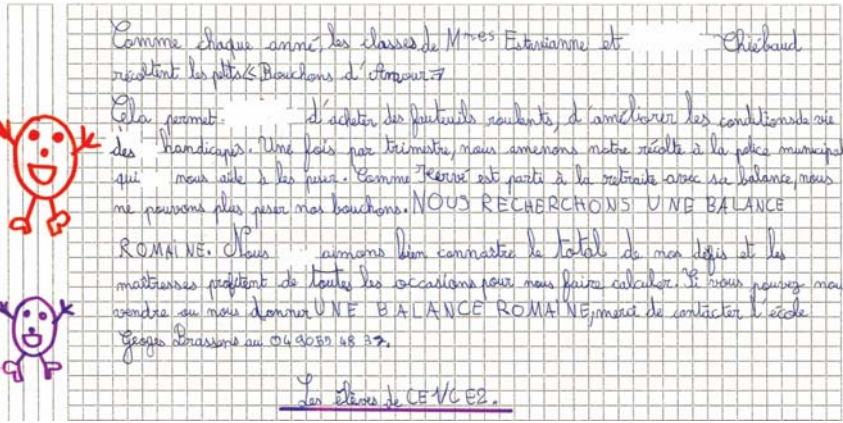 Comme chaque anné, les classes de Mmes Estevianne et Thiébaud
récoltent les petits « Bouchons d'Amour »
Cela permet d'acheter des fauteuils roulants, d'améliorer les conditions de vie
des handicapés. Une fois par trimestre, nous amenons notre récolte à la police municipal
qui nous aide à les peser. Comme Hervé est parti à la retraite avec sa balance, nous
ne pouvons plus peser nos bouchons. NOUS RECHERCHONS UNE BALANCE
ROMAINE. Nous aimons bien connaître le total de nos défis et les
maîtresses profitent de toutes les occasions pour nous faire calculer. Si vous pouvez nous
vendre ou nous donner UNE BALANCE ROMAINE, merci de contacter l'école
Georges Brassens au 04 90 59 48 37.
Les élèves de CE1/CE2.